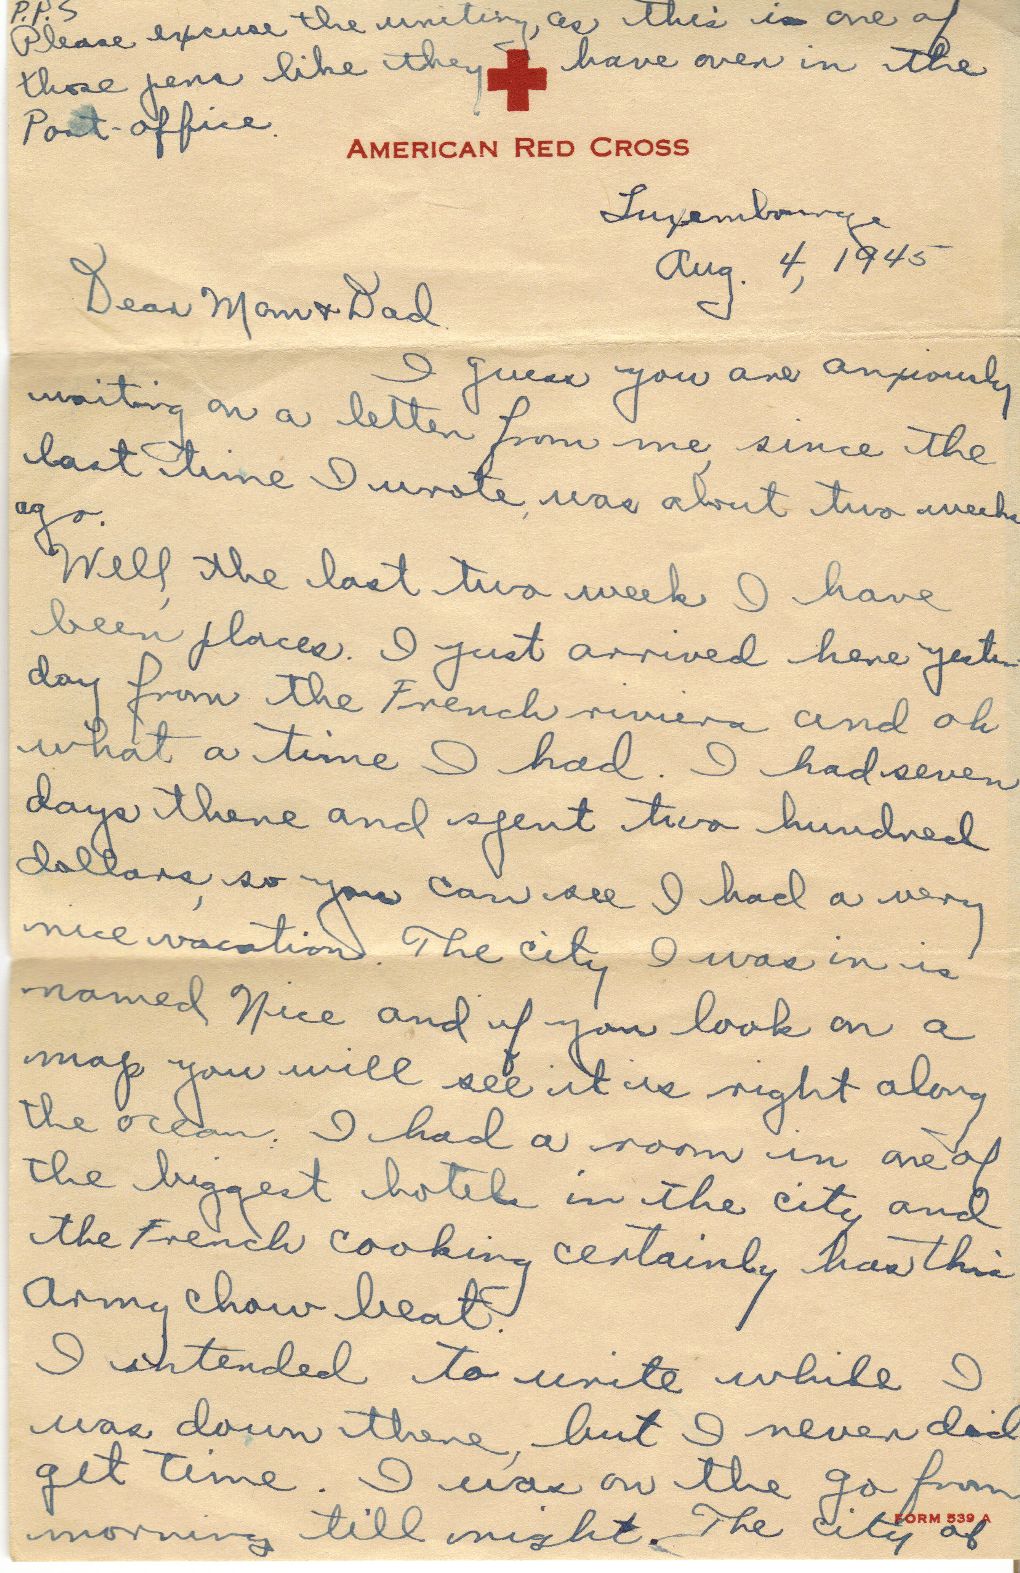 P.P.S
Please excuse the writing, as this is one of
those pens like they have over in the
Post-office.
AMERICAN RED CROSS
Luxembourge
Aug. 4, 1945
Dear Mom & Dad
I guess you are anxiously
waiting on a letter from me, since the
last time I wrote, was about two weeks
ago.
Well, the last two week I have
been places. I just arrived here yester-
day from the French riviera and oh
what a time I had. I had seven
days there and spent two hundred
dollars, so you can see I had a very
nice vacation. The city I was in is
named Nice and if you look on a
map you will see it is right along
the ocean. I had a room in one of
the biggest hotels in the city and
the French cooking certainly has this
Army chow beat.
I intended to write while I
was down there, but I never did
get time. I was on the go from
morning till night. The city of
FORM 539 A